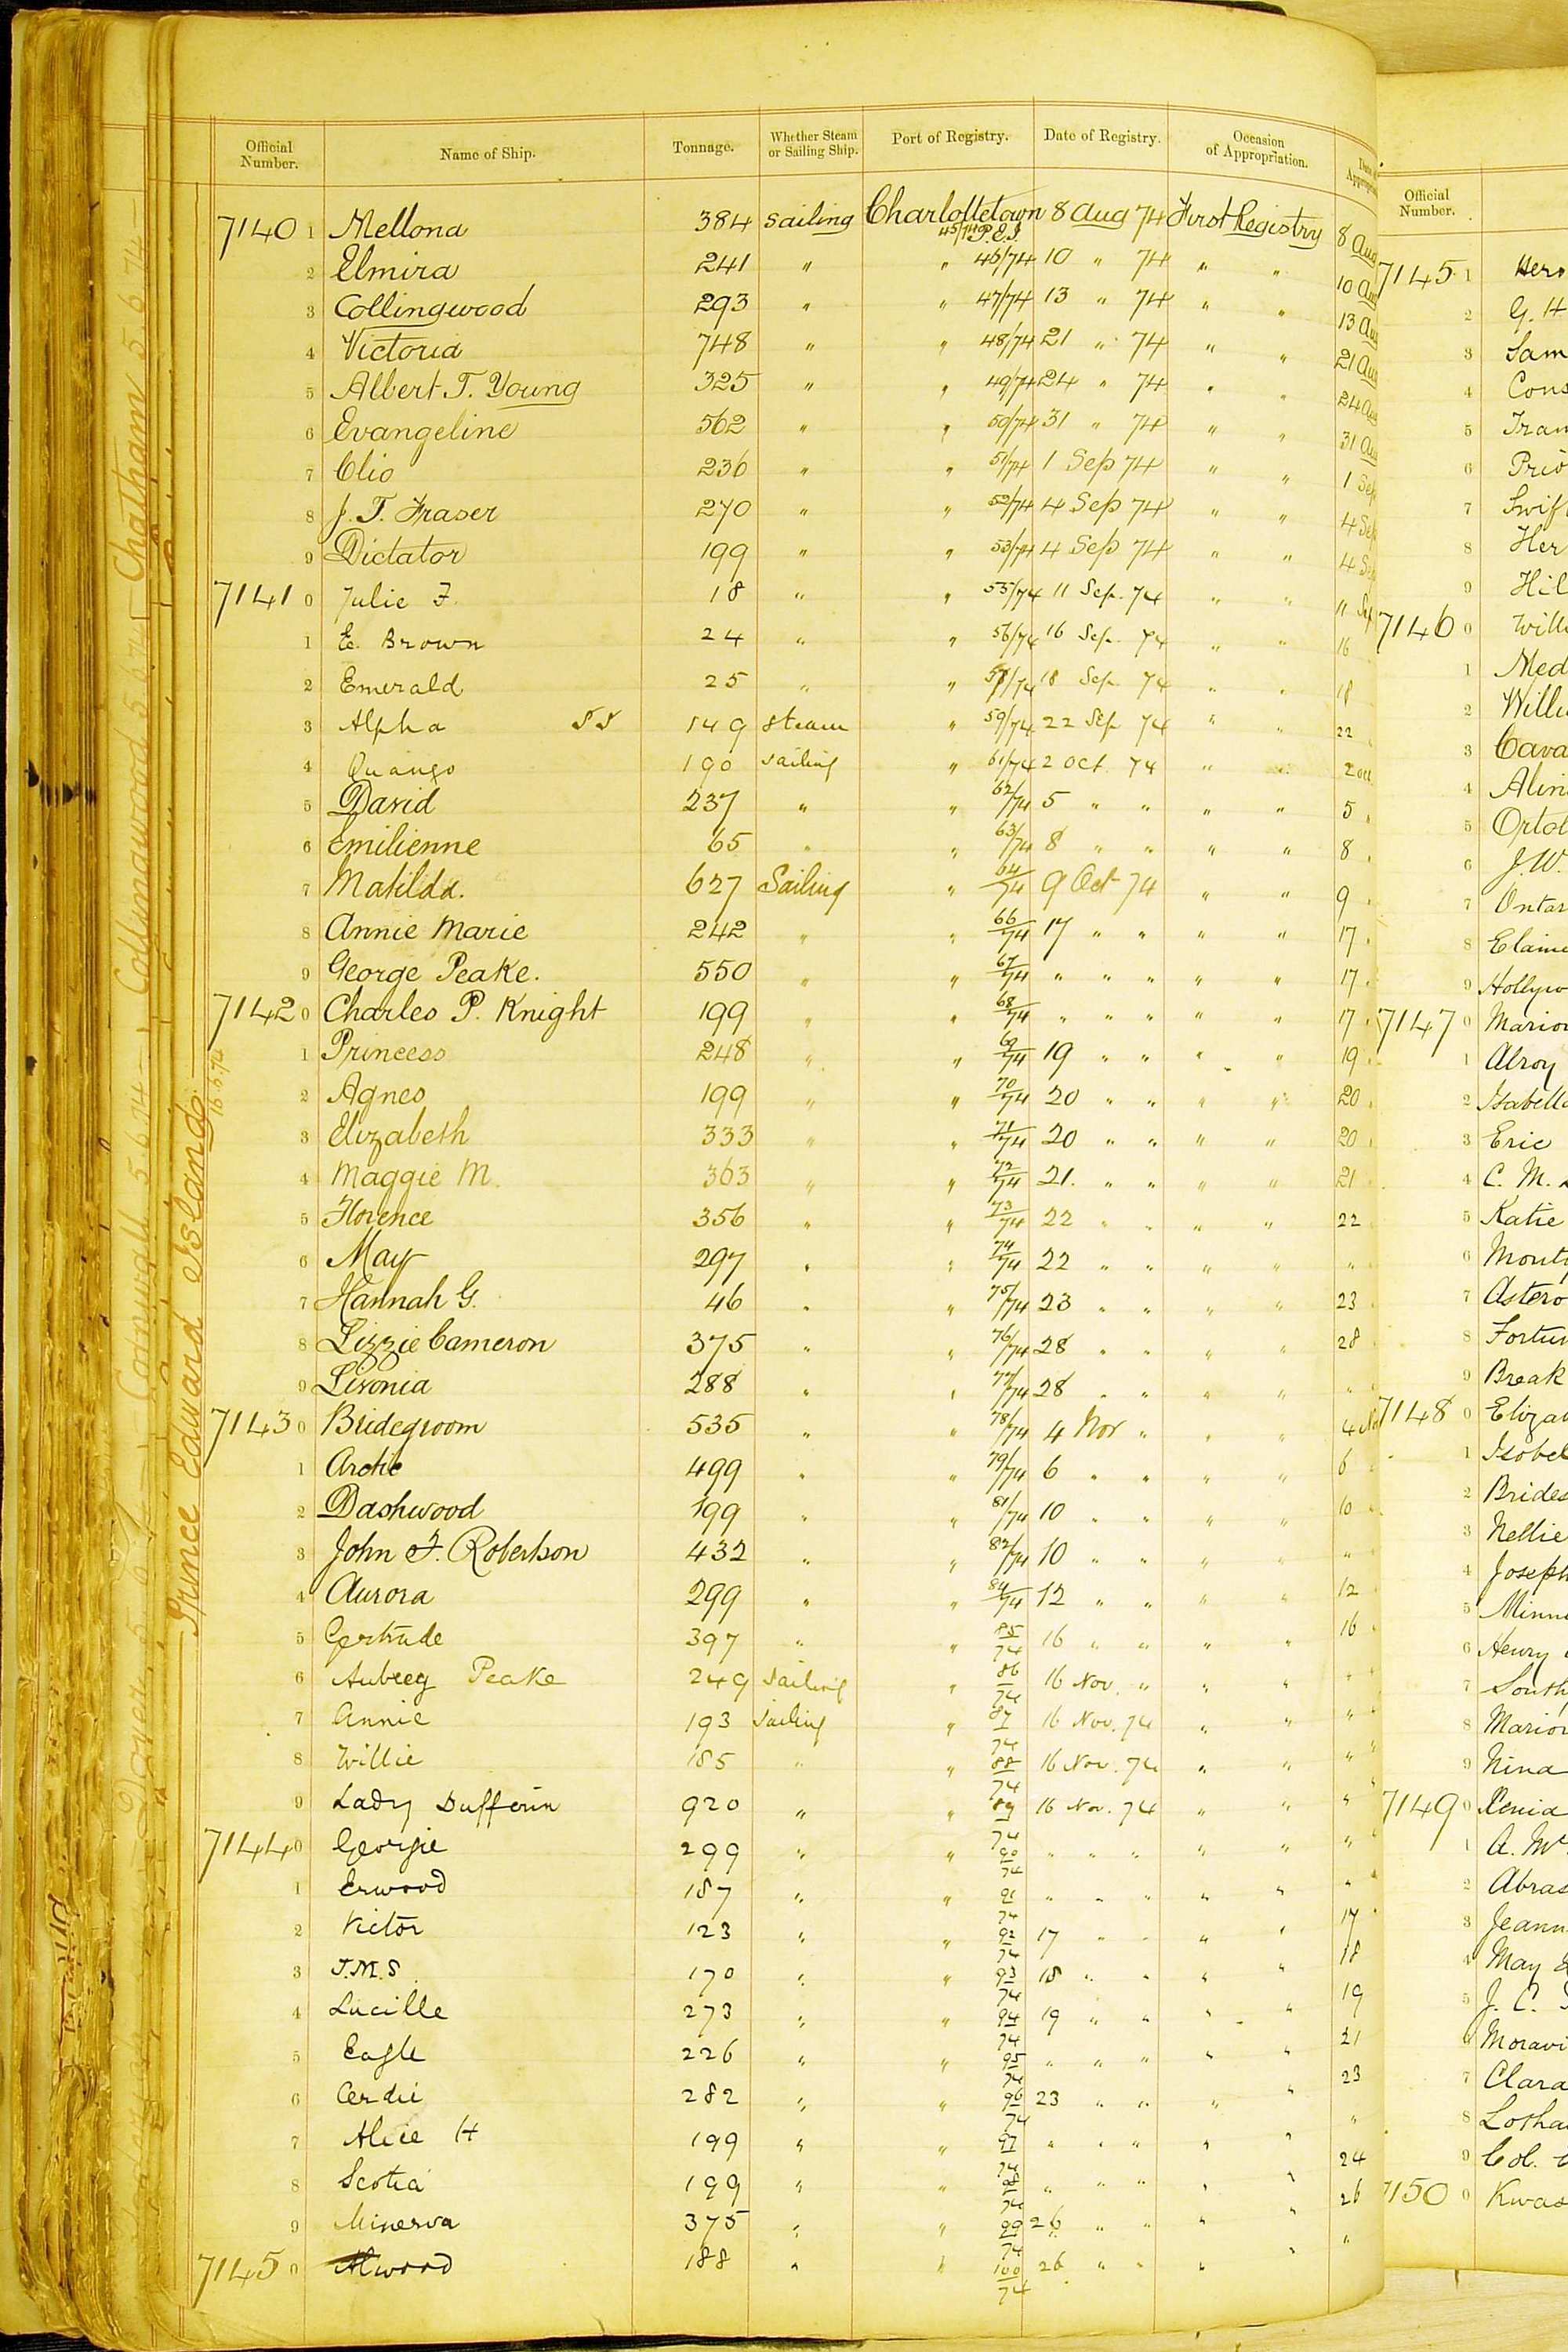 Official Number. Name of Ship. Tonnage. Whether Steam or Sailing Ship. Port of Registry. Date of Registry. Occasion of Appropriation.
7140 1 Mellona 384 Sailing Charlottetown P.E.I. 45/74 8 Aug 74 First Registry 8 Aug
2 Elmira 241 " " 46/74 10 " 74 " " 10 Aug
3 Collingwood 293 " " 47/74 13 " 74 " " 13 Aug
4 Victoria 748 " " 48/74 21 " 74 " " 21 Aug
5 Albert T. Young 325 " " 49/74 24 " 74 " " 24 Aug
6 Evangeline 562 " " 50/74 31 " 74 " " 31 Au
7 Clio 236 " " 51/74 1 Sep 74 " " 1 Sep
8 J. T. Fraser 270 " " 52/74 4 Sep 74 " " 4 Sep
9 Dictator 199 " " 53/74 4 Sep 74 " " 4 Sep
7141 0 Julie F. 18 " " 55/74 11 Sep. 74 " " 11 Sep
1 E. Brown 24 " " 56/74 16 Sep. 74 " " 16
2 Emerald 25 " " 18 Sep 74 " " 18
3 Alpha SS 149 Steam " 59/74 22 Sep 74 " " 22
4 Quango 190 Sailing " 61/74 2 Oct. 74 " " 2 Oct
5 David 237 " " 62/74 5 " " " " 5 "
6 Emilienne 65 " " 63/74 8 " " " " 8 "
7 Matilda. 627 Sailing " 64/74 9 Oct 74 " " 9 "
8 Annie Marie 242 " " 66/74 17 " " " " 17 "
9 George Peake. 550 " " 67/74 " " " " " 17 "
7142 0 Charles P. Knight 199 " " 68/74 " " " " " 17 "
1 Princess 248 " " 69/74 19 " " " " 19 "
2 Agnes 199 " " 70/74 20 " " " " 20 "
3 Elizabeth 333 " " 71/74 20 " " " " 20 "
4 Maggie M. 363 " " 72/74 21. " " " " 21 "
5 Florence 356 " " 73/74 22 " " " " 22
6 May 297 " " 74/74 22 " " " " "
7 Hannah G. 46 " " 75/74 23 " " " " 23 "
8 Lizzie Cameron 375 " " 76/74 28 " " " " 28 "
9 Livonia 288 " " 77/74 28 " " " " "
7143 0 Bridegroom 535 " " 78/74 4 Nov " " " 4 No
1 Arctic 499 " " 79/74 6 " " " " 6 "
2 Dashwood 199 " " 81/74 10 " " " " 10 "
3 John F. Robertson 432 " " 82/74 10 " " " " "
4 Aurora 299 " " 84/74 12 " " " " 12 "
5 Gertrude 397 " " 85/74 16 " " " " 16 "
6 Aubrey Peake 249 Sailing " 86/74 16 Nov. " " " " "
7 Annie 193 Sailing " 87/74 16 Nov. 74 " " " "
8 Willie 185 " " 88/74 16 Nov. 74 " " " "
9 Lady Dufferin 920 " " 89/74 16 Nov. 74 " " " "
7144 0 Georgie 299 " " 90/74 " " " " " " "
1 Erwood 187 " " 91/74 " " " " " " "
2 Victor 123 " " 92/74 17 " " " " 17 "
3 T.M.S. 170 " " 93/74 18 " " " " 18
4 Lucille 273 " " 94/74 19 " " " " 19
5 Eagle 226 " " 95/74 " " " " " 21
6 Cerdic 282 " " 96/74 23 " " " " 23
7 Alice H 199 " " 97/74 " " " " " "
8 Scotia 199 " " 98/74 " " " " " 24
9 Minerva 375 " " 99/74 26 " " " " 26
7145 0 Atwood 188 " " 100/74 26 " " " " "
Prince Edward Island
16.6.74
Cornwall 5.6.74 — Collingwood 5.6.74 Chatham 5.6.74
Dover 5.6.74
Official Number.
7145 1 Hero
2 G. H
3 Sam
4 Cons
5 Fran
6 Prio
7 Swif
8 Her
9 Hil
7146 0 Will
1 Med
2 Willi
3 Cava
4 Alin
5 Ortol
6 J. W.
7 Ontar
8 Elaine
9 Hollyw
7147 0 Marion
1 Alroy
2 Isabella
3 Eric
4 C. M.
5 Katie
6 Mont
7 Astero
8 Fortun
9 Break
7148 0 Elizab
1 Isobel
2 Brides
3 Nellie
4 Joseph
5 Minn
6 Henry
7 South
8 Marion
9 Nina
7149 0 Xenia
1 A. Mc
2 Abras
3 Jeann
4 May
5 J. C.
6 Moravi
7 Clara
8 Lotha
9 Col.
7150 0 Kwas